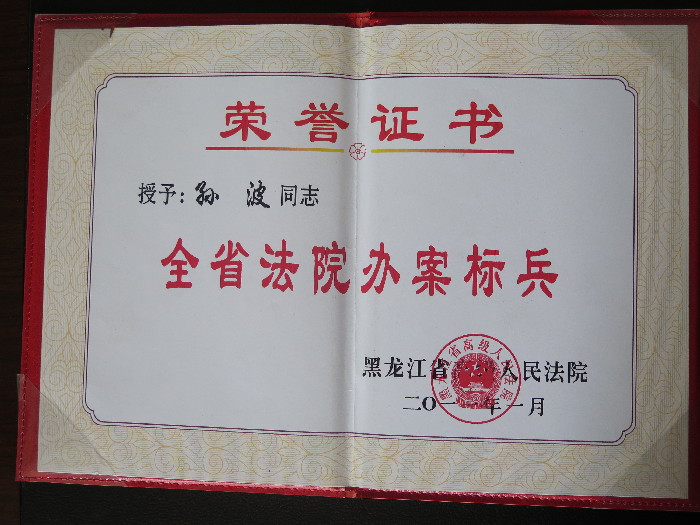 荣誉证书
授予：孙 波 同志
全省法院办案标兵
黑龙江省高级人民法院
二〇一 年一月
黑龙江省高级人民法院